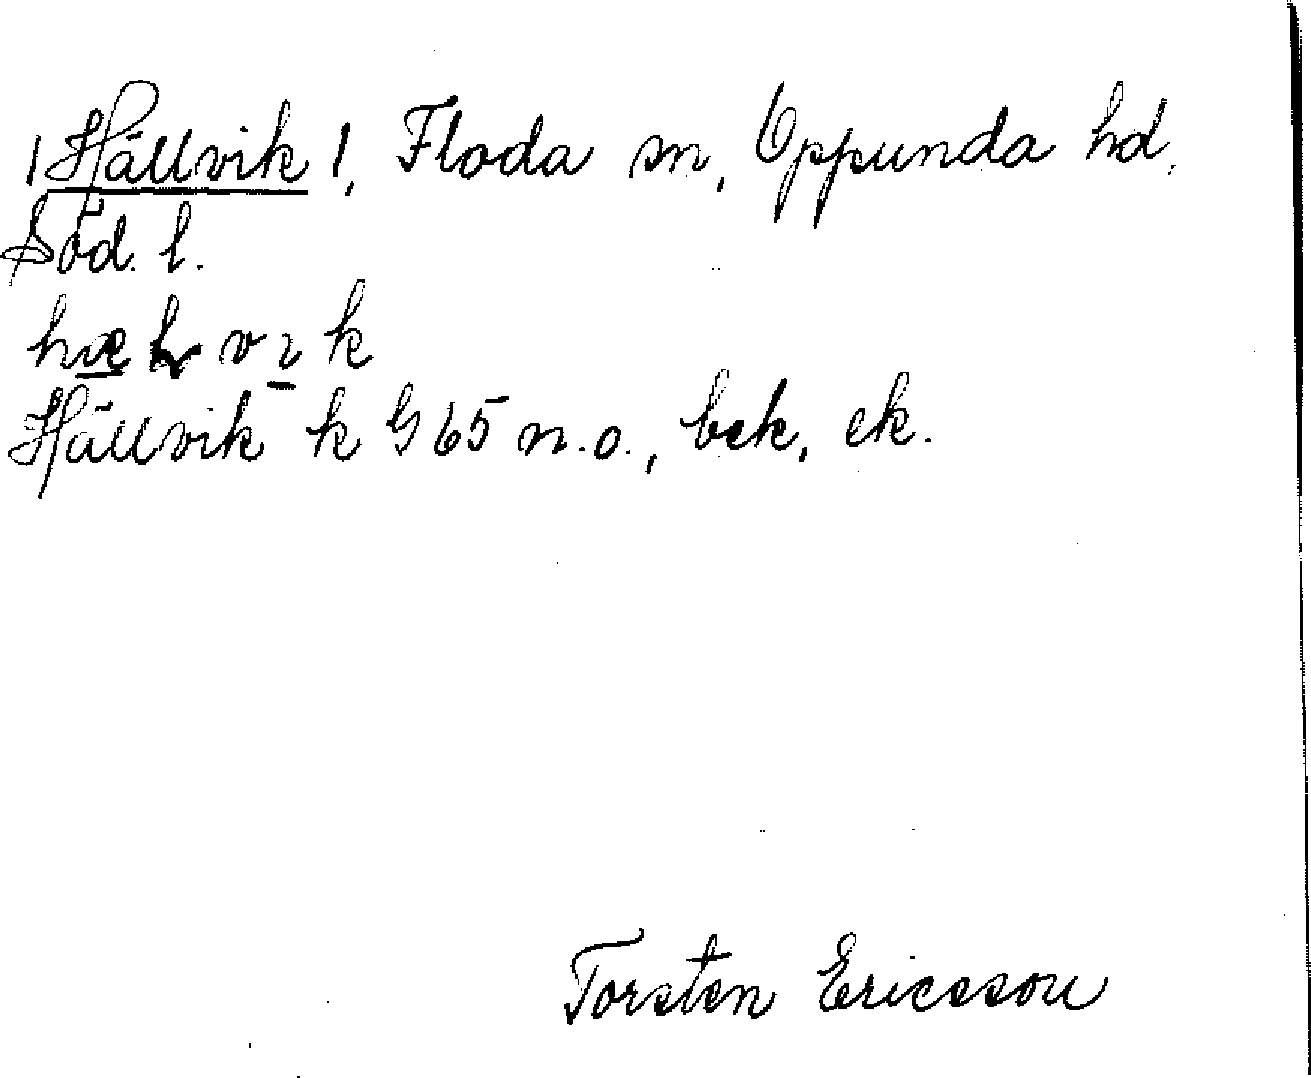 /Hällvik/, Floda sn, Oppunda hd.
Söd. l.
hæl vik
Hällvik k G 65 n.o., bek, ek.
Torsten Ericsson